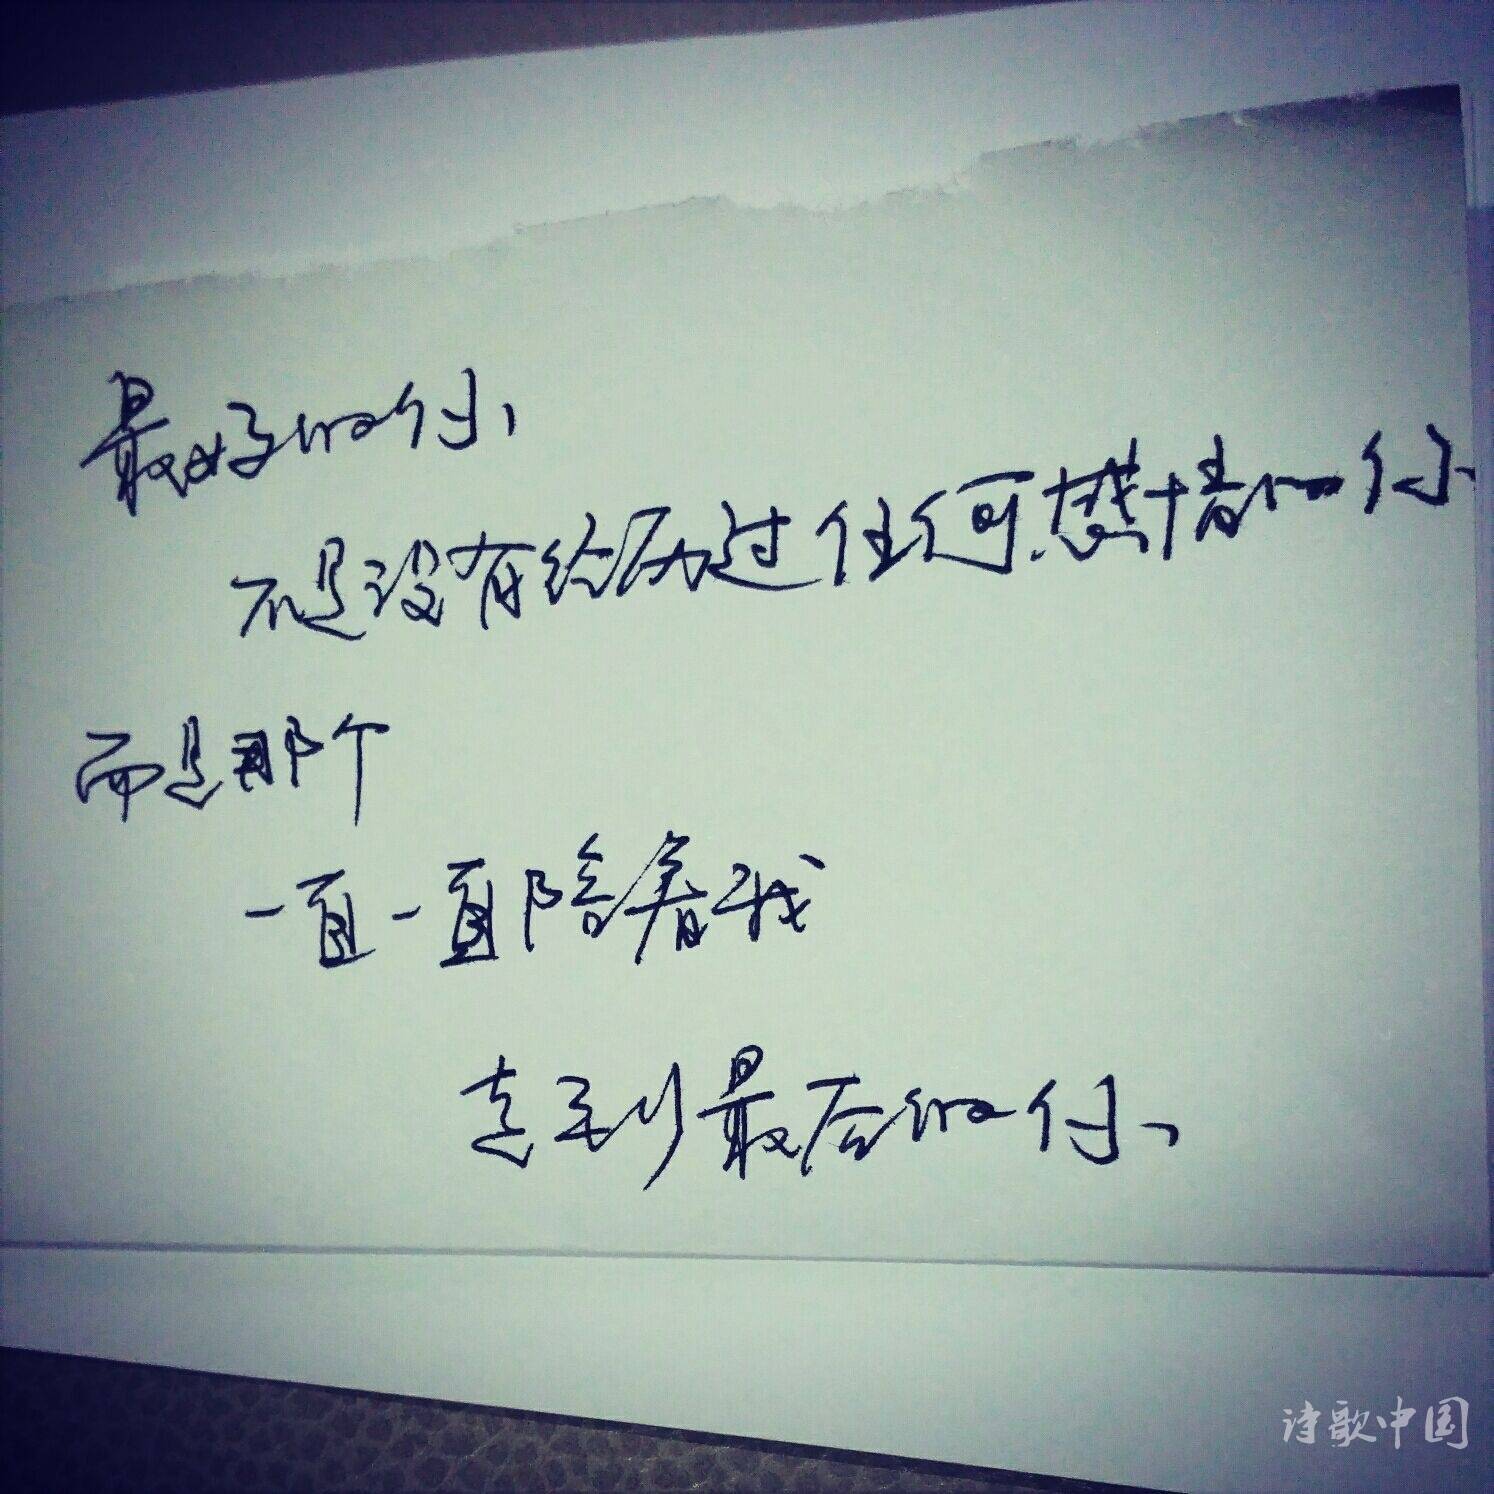 最好的你
不是没有经历过任何感情的你
而是那个
一直一直陪着我
走到最后的你
诗歌中国